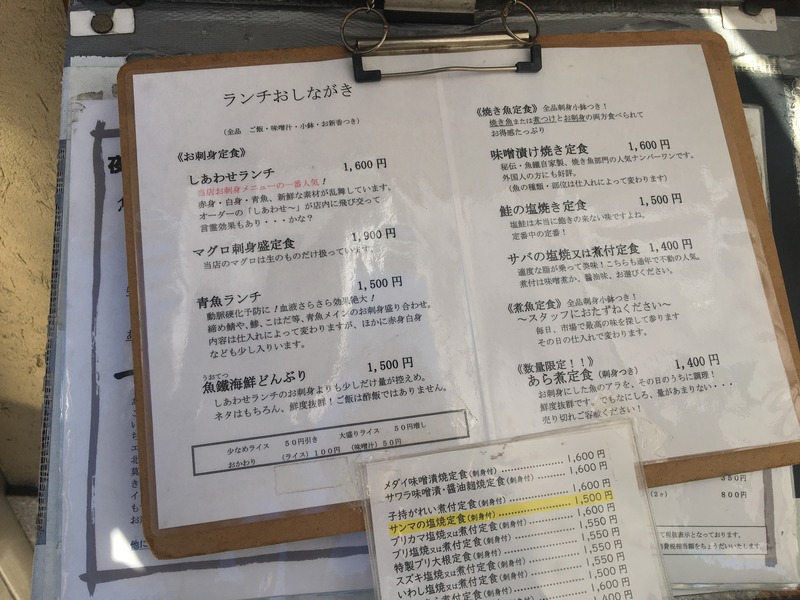 ランチおしながき
(全品 ご飯・味噌汁・小鉢・お新香つき)
《お刺身定食》
しあわせランチ 1,600円
当店お刺身メニューの一番人気!
赤身・白身・青魚、新鮮な素材が乱舞しています。
オーダーの「しあわせ~」が店内に飛び交って
言霊効果もあり・・・かな?
マグロ刺身盛定食 1,900円
当店のマグロは生のものだけ扱っています。
青魚ランチ 1,500円
動脈硬化予防に!血液さらさら効果絶大!
締め鯖や、鯵、こはだ等、青魚メインのお刺身盛り合わせ。
内容は仕入れによって変わりますが、ほかに赤身白身
なども少し入います。
うおてつ
魚鐵海鮮どんぶり 1,500円
しあわせランチのお刺身よりも少しだけ量が控えめ。
ネタはもちろん、鮮度抜群!ご飯は酢飯ではありません。
少なめライス 50円引き 大盛りライス 50円増し
おかわり (ライス)100円 (味噌汁)50円
《焼き魚定食》全品刺身小鉢つき!
焼き魚または煮つけとお刺身の両方食べられて
お得感たっぷり
味噌漬け焼き定食 1,600円
秘伝・魚鐵自家製、焼き魚部門の人気ナンバーワンです。
外国人の方にも好評。
(魚の種類・部位は仕入れによって変わります)
鮭の塩焼き定食 1,500円
塩鮭は本当に飽きの来ない味ですよね。
定番中の定番!
サバの塩焼又は煮付定食 1,400円
適度な脂が乗って美味!こちらも通年で不動の人気。
煮付は味噌煮か、醤油味、お選びください。
《煮魚定食》全品刺身小鉢つき!
~スタッフにおたずねください~
毎日、市場で最高の味を探して参ります
その日の仕入れで変わります。
《数量限定!!》
あら煮定食(刺身つき) 1,400円
お刺身にした魚のアラを、その日のうちに調理!
鮮度抜群です。でもなにしろ、量があまりない・・・
売り切れご容赦ください!
メダイ味噌漬焼定食(刺身付) 1,600円
サワラ味噌漬・醤油麹焼定食(刺身付) 1,600円
子持がれい煮付定食(刺身付) 1,600円
サンマの塩焼定食(刺身付) 1,500円
ブリカマ塩焼又は煮付定食(刺身付) 1,600円
ブリ塩焼又は煮付定食(刺身付) 1,550円
特製ブリ大根定食(刺身付) 1,550円
スズキ塩焼又は煮付定食(刺身付) 1,550円
いわし塩焼又は煮付定食(刺身付) 1,500円
350円
800円
て税抜表示となっております。
消費税相当額をちょうだいいたします。